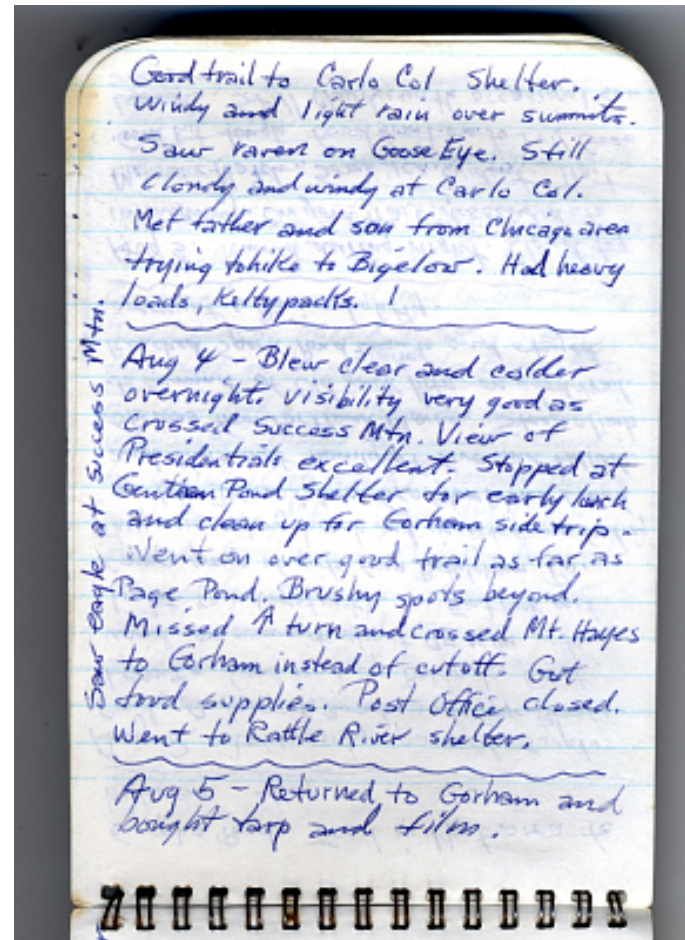 Good trail to Carlo Col Shelter.
Windy and light rain over summits.
Saw raven on Goose Eye. Still
cloudy and windy at Carlo Col.
Met father and son from Chicago area
trying to hike to Bigelow. Had heavy
loads, Kelty packs. !
Aug 4 - Blew clear and colder
overnight. visibility very good as
crossed Success Mtn. View of
Presidentials excellent. Stopped at
Gentian Pond Shelter for early lunch
and clean up for Gorham side trip.
Went on over good trail as far as
Page Pond. Brushy spots beyond.
Missed ↑ turn and crossed Mt. Hayes
to Gorham instead of cutoff. Got
food supplies. Post Office closed.
Went to Rattle River shelter.
Aug 5 - Returned to Gorham and
bought tarp and film.
Saw eagle at Success Mtn.